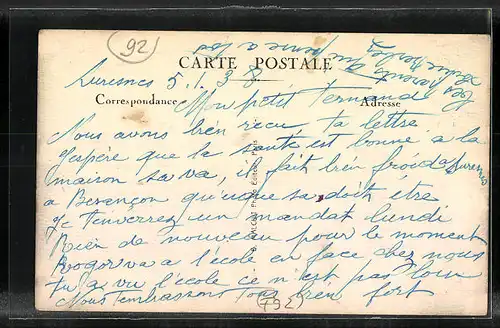 (92)
CARTE POSTALE
Suresnes 5.1.38
Correspondance
Adresse
Mon petit Fernand
Nous avons bien recu ta lettre
j'espère que la santé est bonne a la
maison sa va, il fait bien froid a Suresnes
a Besançon qu'es sa doit etre
Je t'enverrez un mandat lundi
Rien de nouveau pour le moment
Roger va a l'ecole en face chez nous
tu a vu l'ecole ce n'est pas loin
Nous t'embrassons tous bien fort
(92)